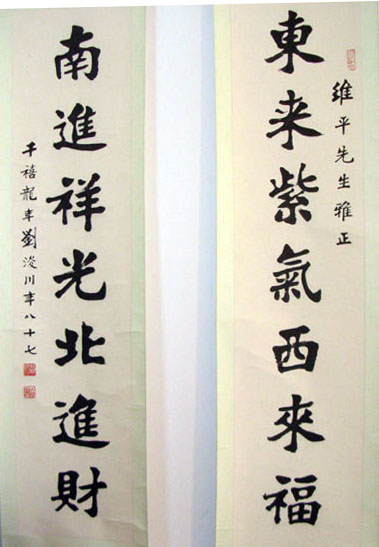 維平先生雅正
東来紫氣西來福
南進祥光北進財
千禧龍年劉浚川年八十七